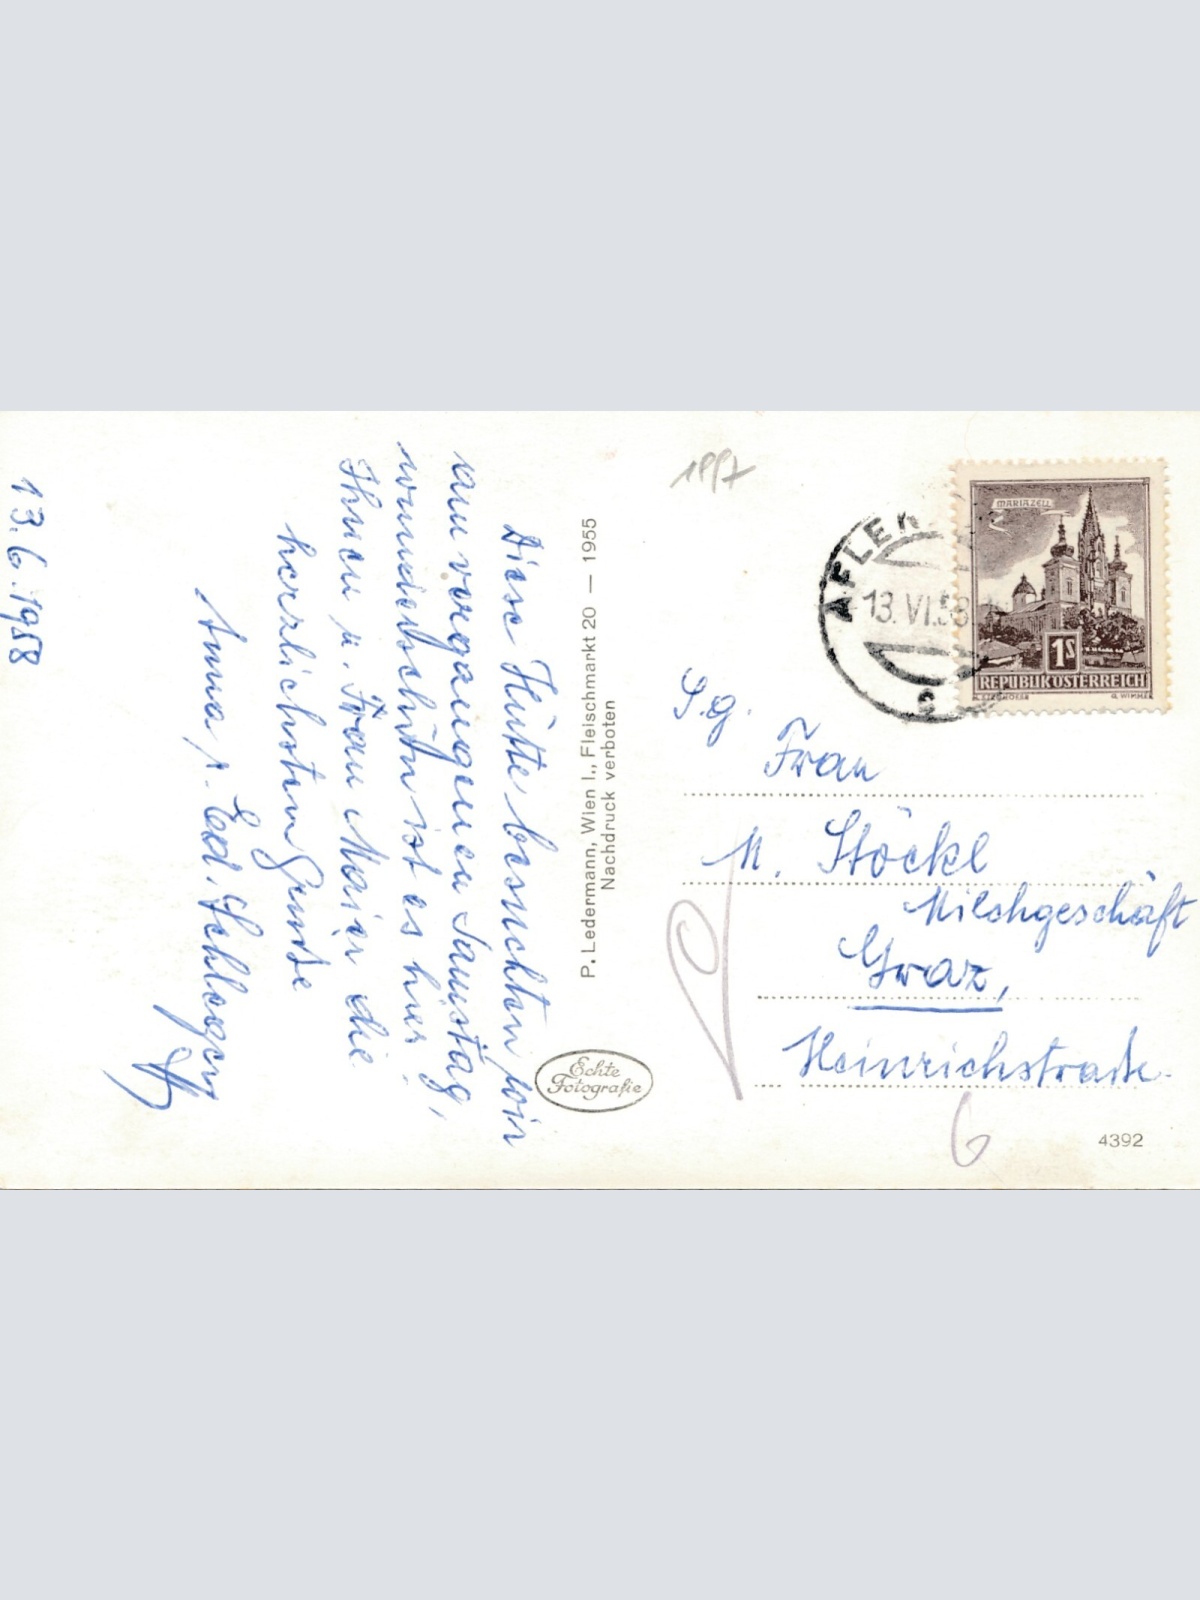 13.6.1958
Diese Hütte besuchten wir
am vergangenen Samstag,
wunderschön ist es hier.
Ihnen u. Frau Maier die
herzlichsten Grüße
Anna u. Ed.
P. Ledermann, Wien I., Fleischmarkt 20 — 1955
Nachdruck verboten
Echte
Fotografie
AFLEN
13.VI.58
MARIAZELL
1S
REPUBLIK ÖSTERREICH
G. WIMMER
S.g.
Frau
M. Stöckl
Milchgeschäft
Graz,
Heinrichstraße
6
4392